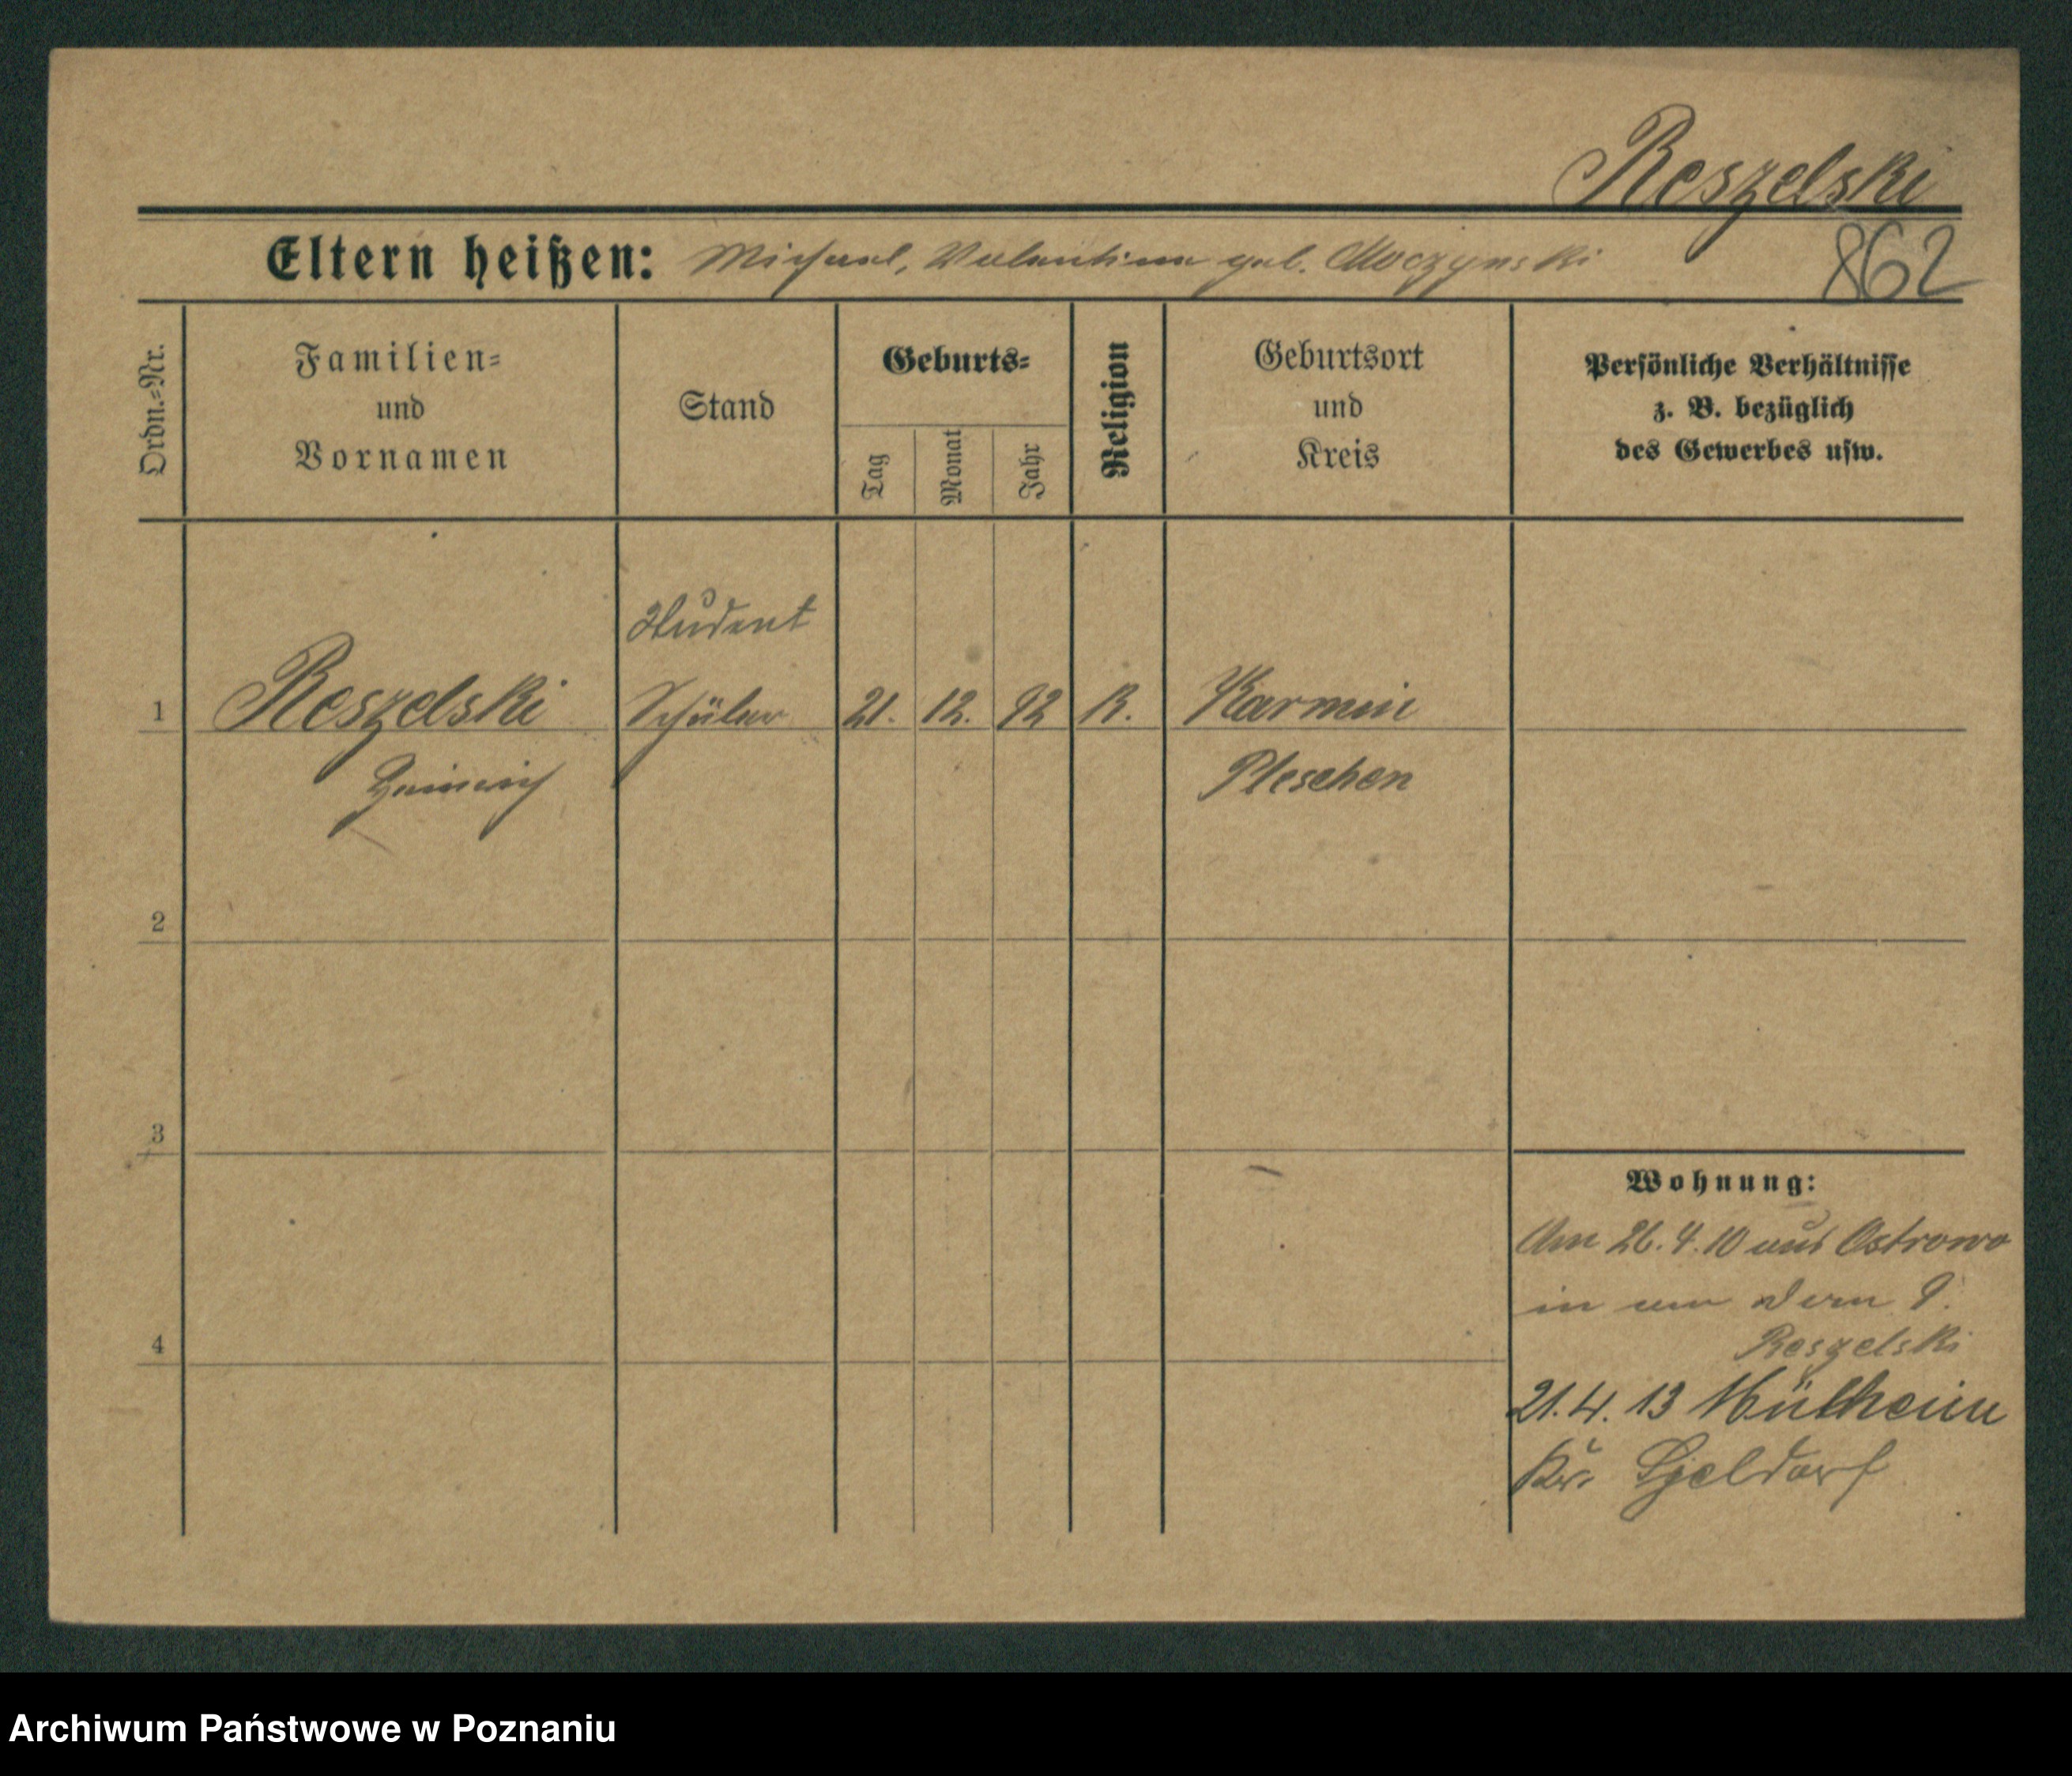 Reszelski
Eltern heißen: Michael, Valentina geb. Moczynski 862
Ordn.=Nr.
Familien=
und
Vornamen
Stand
Geburts=
Tag
Monat
Jahr
Religion
Geburtsort
und
Kreis
Persönliche Verhältnisse
z. B. bezüglich
des Gewerbes usw.
Student
1 Reszelski Schüler 21. 12. 92 K. Karmin
Heinrich Pleschen
2
3
4
Wohnung:
Am 26.4.10 aus Ostrowo
in
Reszelski
21.4.13 Mülheim
Kr.
Archiwum Państwowe w Poznaniu